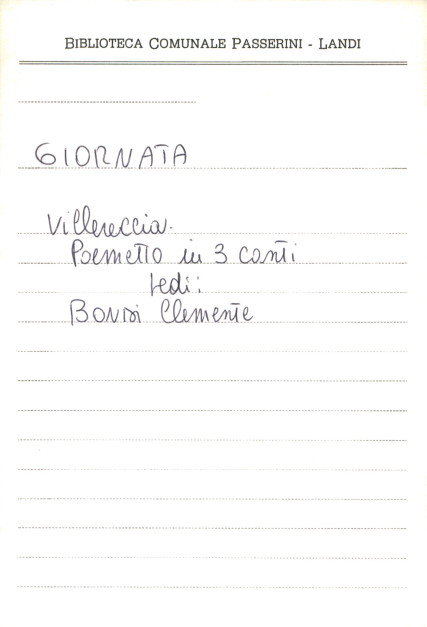 BIBLIOTECA COMUNALE PASSERINI - LANDI
GIORNATA
Villereccia.
Poemetto in 3 canti
Vedi:
BONDI Clemente